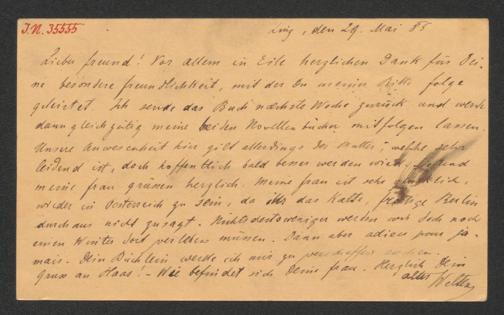 I.N. 35555
Linz, den 29. Mai 85
Lieber Freund! Vor allem in Eile herzlichen Dank für Dei-
ne besondere Freundlichkeit, mit der Du meiner Bitte Folge
geleistet. Ich sende das Buch nächste Woche zurück und werde
dann gleichzeitig meine beiden Novellenbücher mitfolgen lassen.
Unsere Anwesenheit hier gilt allerdings der Mutter, welche sehr
leidend ist, doch hoffentlich bald besser werden wird.
meine Frau grüssen herzlich. Meine Frau ist sehr glücklich,
wieder in Oesterreich zu sein, da ihr das kalte, Berlin
durchaus nicht zusagt. Nichtsdestoweniger werden wir doch noch
einen Winter dort verleben müssen. Dann aber adieu pour ja-
mais. Dein Büchlein werde ich mir zu verschaffen suchen.
Gruss an Haas. - Wie befindet sich Deine Frau. Herzlich Dein
alter